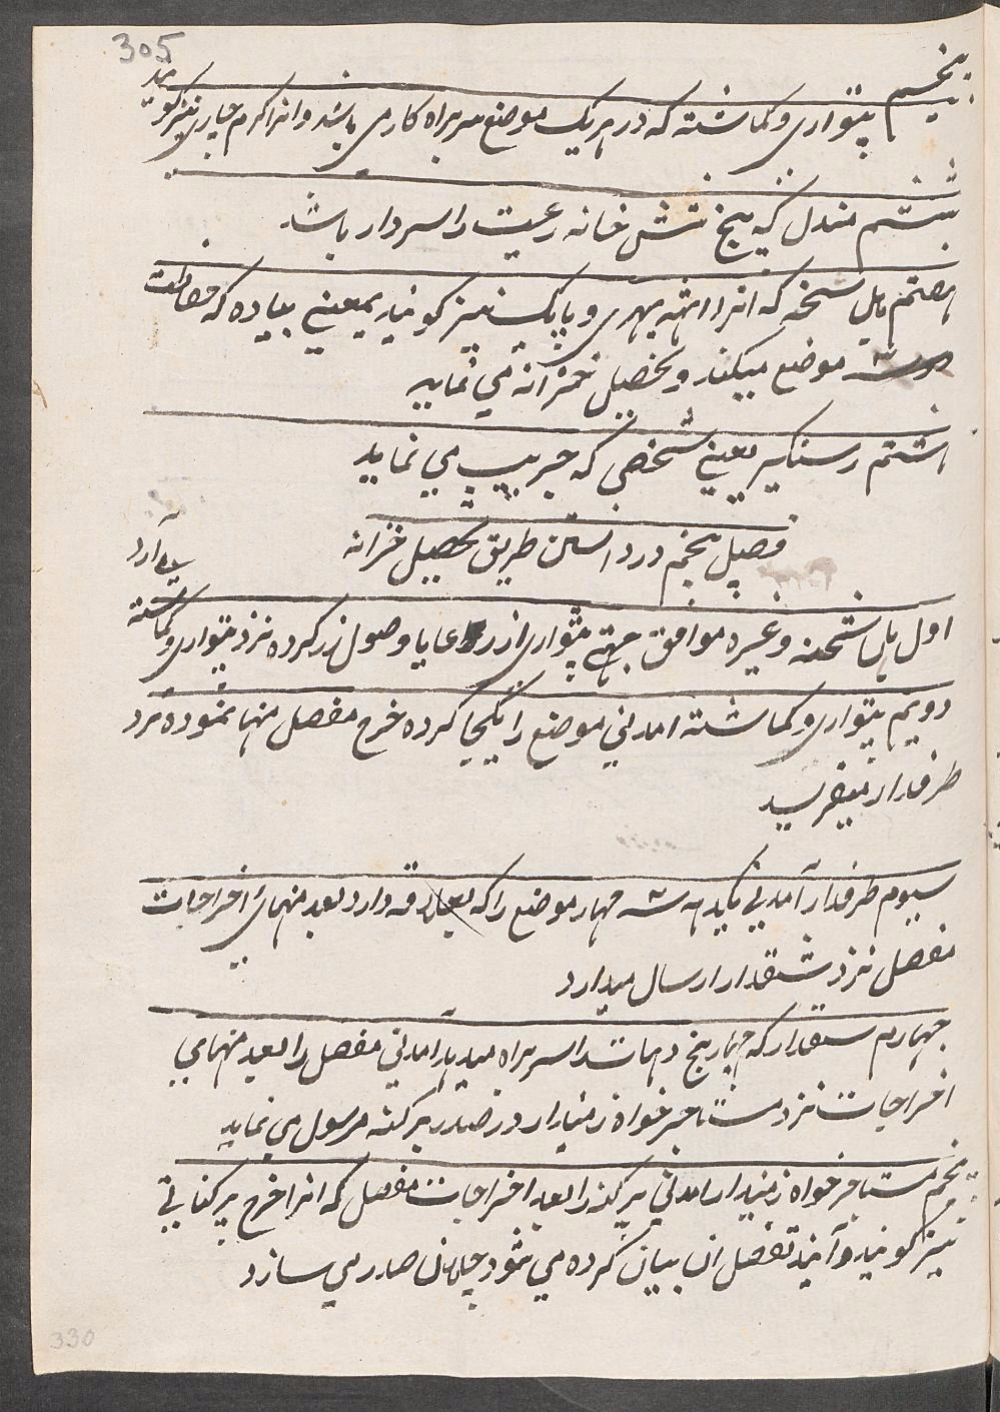 305
پنجم پتواری و کماشته که در هر یک موضع سربراه کار می باشد و انرا کرم چاری نیز کویند
ششم مندل که پنج شش خانه رعیت را سردار باشد
هفتم پایل شحنه که انرا انته پهری و پایک نیز کویند یعنی پیاده که حفاظت
موضع میکند و تحصیل خزانه می نماید
هشتم رسنکیر یعنی شخصی که جریب می نماید
فصل پنجم در دانستن طریق تحصیل خزانه
اول پایل شحنه و غیره موافق جهتی پتواری از رعایا وصول زر کرده نزد پتواری و کماشته
می آرد
دویم پتواری و کماشته امدنی موضع را یکجا کرده خرج مفصل منها نموده نزد
طرفدار میفرسد
سیوم طرفدار آمدنی یکدهه سه چهار موضع را که بعلاقه دارد بعد منهای اخراجات
مفصل نزد شقدار ارسال میدارد
چهارم شقدار که چهار پنج دهات را سربراه میدهد آمدنی مفصل را بعد منهای
اخراجات نزد مستاجر خواه زمیندار در صدر پرکنه مرسول می نماید
پنجم مستاجر خواه زمیندار امدنی پرکنه را بعد اخراجات مفصل که انرا خرج پرکناتی
نیز کویند و آینده تفصل ان بیان کرده می شود چالان صدر می سازد
330